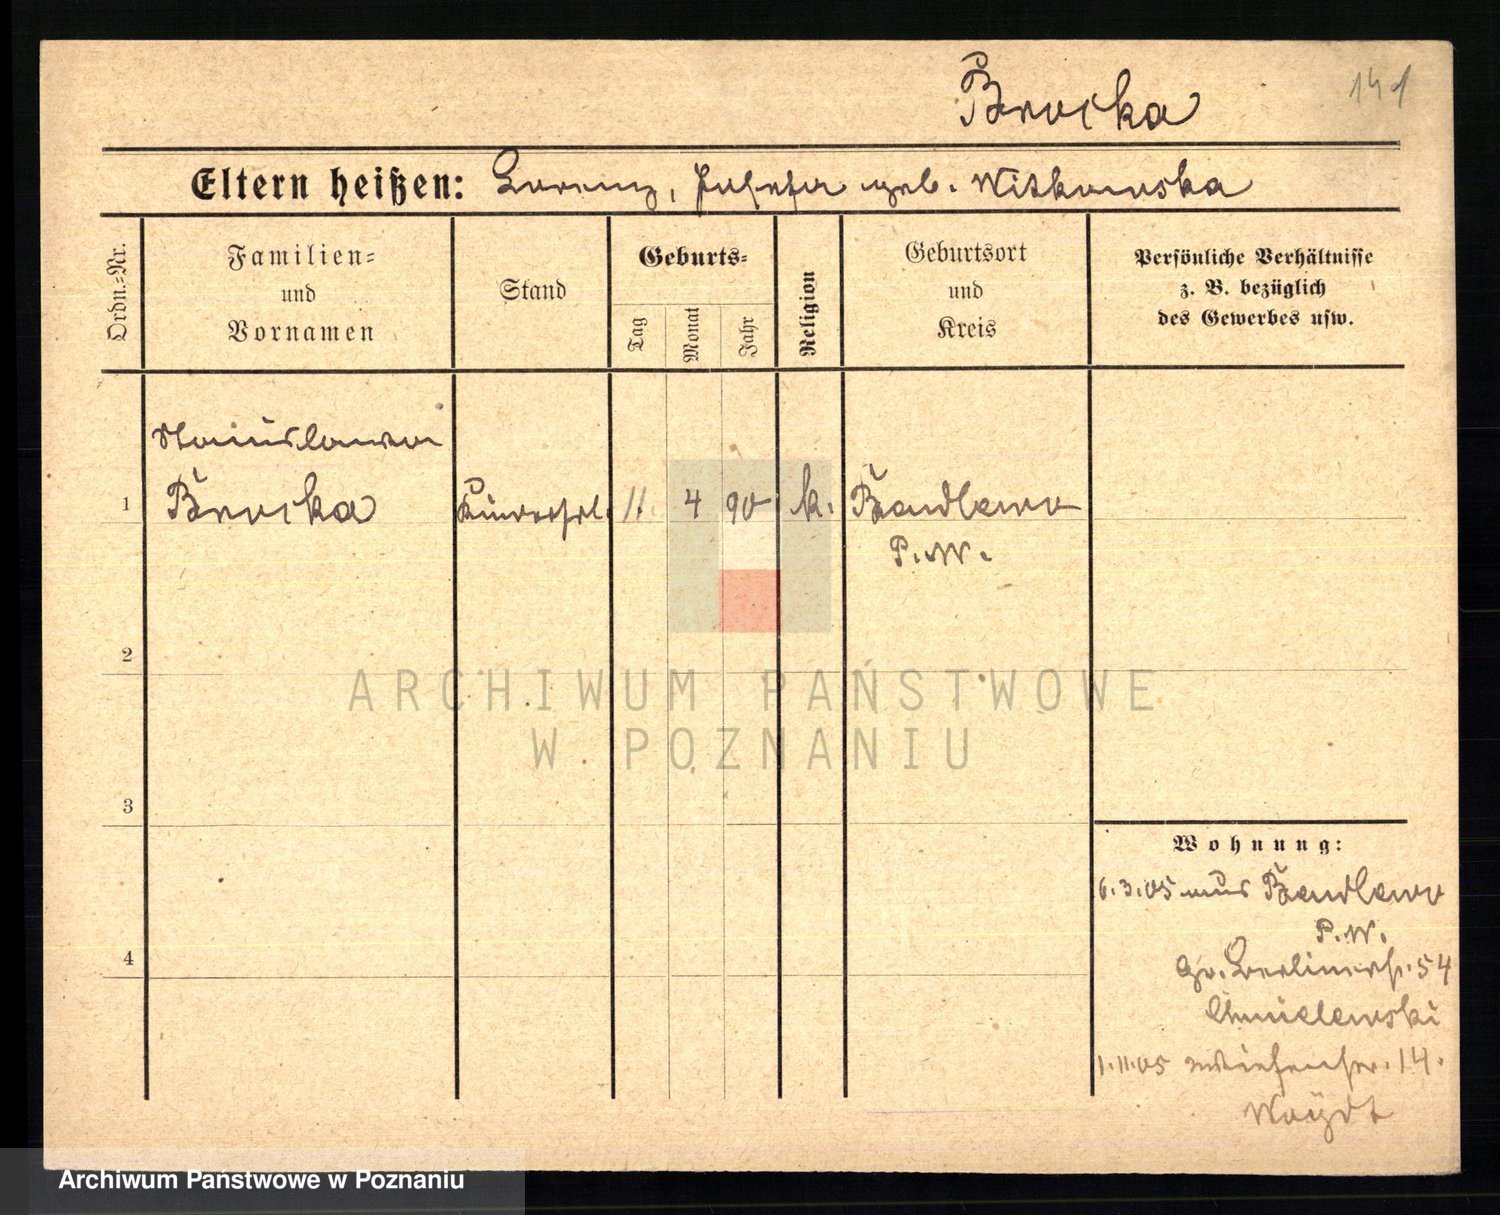 Brocka
141
Eltern heißen: Lorenz, Josefa geb. Witkowska
Ordn.-Nr.
Familien-
und
Vornamen
Stand
Geburts-
Tag
Monat
Jahr
Religion
Geburtsort
und
Kreis
Persönliche Verhältnisse
z. B. bezüglich
des Gewerbes usw.
Stanislawa
1 Brocka 11. 4 90 k. Bendlewo
P. W.
2
ARCHIWUM PAŃSTWOWE
W POZNANIU
3
Wohnung:
6.3.05 aus Bendlewo
P. W.
4
Gr. Berlinerstr. 54
Chmielewski
1.11.05 Wiesenstr. 14.
Woydt
Archiwum Państwowe w Poznaniu